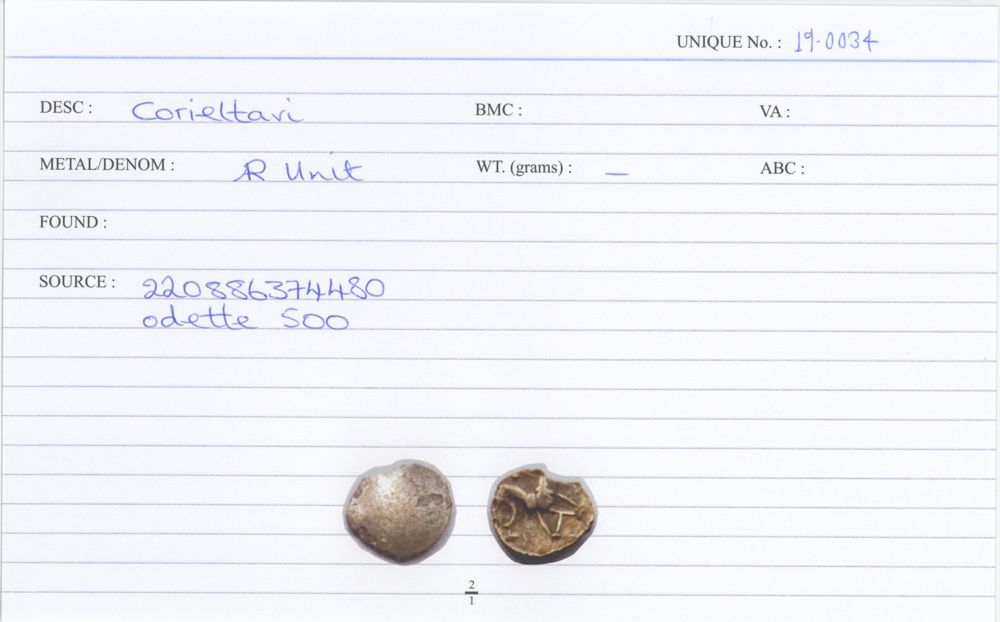 UNIQUE No. : 19-0034
DESC : Corieltavi BMC : VA :
METAL/DENOM : AR Unit WT. (grams) : — ABC :
FOUND :
SOURCE : 220886374480
odette 500
2
1